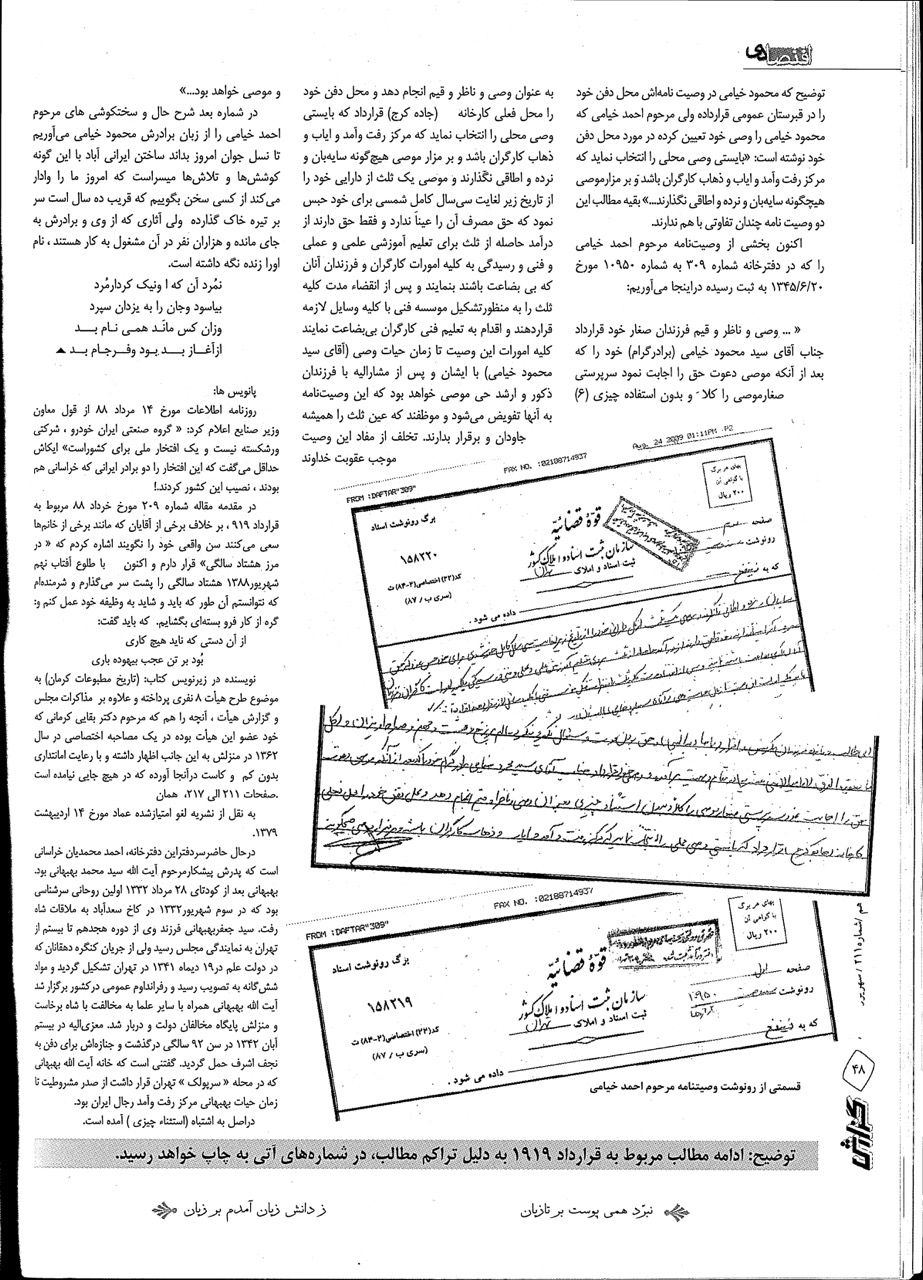 اقتصادی
توضیح که محمود خیامی در وصیت نامه‌اش محل دفن خود
را در قبرستان عمومی قرارداده ولی مرحوم احمد خیامی که
محمود خیامی را وصی خود تعیین کرده در مورد محل دفن
خود نوشته است: «بایستی وصی محلی را انتخاب نماید که
مرکز رفت وآمد و ایاب و ذهاب کارگران باشد و بر مزارموصی
هیچگونه سایه‌بان و نرده و اطاقی نگذارند...» بقیه مطالب این
دو وصیت نامه چندان تفاوتی با هم ندارند.
اکنون بخشی از وصیت‌نامه مرحوم احمد خیامی
را که در دفترخانه شماره ۳۰۹ به شماره ۱۰۹۵۰ مورخ
۱۳۴۵/۶/۲۰ به ثبت رسیده دراینجا می‌آوریم:
« ... وصی و ناظر و قیم فرزندان صغار خود قرارداد
جناب آقای سید محمود خیامی (برادرگرام) خود را که
بعد از آنکه موصی دعوت حق را اجابت نمود سرپرستی
صغارموصی را کلاً و بدون استفاده چیزی (۶)
به عنوان وصی و ناظر و قیم انجام دهد و محل دفن خود
را محل فعلی کارخانه (جاده کرج) قرارداد که بایستی
وصی محلی را انتخاب نماید که مرکز رفت وآمد و ایاب و
ذهاب کارگران باشد و بر مزار موصی هیچ‌گونه سایه‌بان و
نرده و اطاقی نگذارند و موصی یک ثلث از دارایی خود را
از تاریخ زیر لغایت سی‌سال کامل شمسی برای خود حبس
نمود که حق مصرف آن را عیناً ندارد و فقط حق دارند از
درآمد حاصله از ثلث برای تعلیم آموزشی علمی و عملی
و فنی و رسیدگی به کلیه امورات کارگران و فرزندان آنان
که بی بضاعت باشند بنمایند و پس از انقضاء مدت کلیه
ثلث را به منظورتشکیل موسسه فنی با کلیه وسایل لازمه
قراردهند و اقدام به تعلیم فنی کارگران بی‌بضاعت نمایند
کلیه امورات این وصیت تا زمان حیات وصی (آقای سید
محمود خیامی) با ایشان و پس از مشارالیه با فرزندان
ذکور و ارشد حی موصی خواهد بود که این وصیت‌نامه
به آنها تفویض می‌شود و موظفند که عین ثلث را همیشه
جاودان و برقرار بدارند. تخلف از مفاد این وصیت
موجب عقوبت خداوند
و موصی خواهد بود...»
در شماره بعد شرح حال و سختکوشی های مرحوم
احمد خیامی را از زبان برادرش محمود خیامی می‌آوریم
تا نسل جوان امروز بداند ساختن ایرانی آباد با این گونه
کوشش‌ها و تلاش‌ها میسراست که امروز ما را وادار
می‌کند از کسی سخن بگوییم که قریب ده سال است سر
بر تیره خاک گذارده ولی آثاری که از وی و برادرش به
جای مانده و هزاران نفر در آن مشغول به کار هستند ، نام
اورا زنده نگه داشته است.
نمُرد آن که ا ونیک کردارمُرد
بیاسود وجان را به یزدان سپرد
وزان کس مانَد همی نام بــــد
ازآغاز بــد بود وفـرجام بد
پانویس ها:
روزنامه اطلاعات مورخ ۱۴ مرداد ۸۸ از قول معاون
وزیر صنایع اعلام کرد: « گروه صنعتی ایران خودرو ، شرکتی
ورشکسته نیست و یک افتخار ملی برای کشوراست» ایکاش
حداقل می‌گفت که این افتخار را دو برادر ایرانی که خراسانی هم
بودند ، نصیب این کشور کردند.!
در مقدمه مقاله شماره ۲۰۹ مورخ خرداد ۸۸ مربوط به
قرارداد ۹۱۹ ، بر خلاف برخی از آقایان که مانند برخی از خانم‌ها
سعی می‌کنند سن واقعی خود را نگویند اشاره کردم که « در
مرز هشتاد سالگی» قرار دارم و اکنون با طلوع آفتاب نهم
شهریور۱۳۸۸ هشتاد سالگی را پشت سر می‌گذارم و شرمنده‌ام
که نتوانستم آن طور که باید و شاید به وظیفه خود عمل کنم و
گره از کار فرو بسته‌ای بگشایم. که باید گفت:
از آن دستی که ناید هیچ کاری
بُود بر تن عجب بیهوده باری
نویسنده در زیرنویس کتاب: (تاریخ مطبوعات کرمان) به
موضوع طرح هیأت ۸ نفری پرداخته و علاوه بر مذاکرات مجلس
و گزارش هیأت ، آنچه را هم که مرحوم دکتر بقایی کرمانی که
خود عضو این هیأت بوده در یک مصاحبه اختصاصی در سال
۱۳۶۲ در منزلش به این جانب اظهار داشته و با رعایت امانتداری
بدون کم و کاست درآنجا آورده که در هیچ جایی نیامده است
.صفحات ۲۱۱ الی ۲۱۷، همان
به نقل از نشریه لغو امتیازشده عماد مورخ ۱۴ اردیبهشت
۱۳۷۹.
درحال حاضرسردفتراین دفترخانه، احمد محمدیان خراسانی
است که پدرش پیشکارمرحوم آیت الله سید محمد بهبهانی بود.
بهبهانی بعد از کودتای ۲۸ مرداد ۱۳۳۲ اولین روحانی سرشناسی
بود که در سوم شهریور۱۳۳۲ در کاخ سعدآباد به ملاقات شاه
رفت. سید جعفربهبهانی فرزند وی از دوره هجدهم تا بیستم از
تهران به نمایندگی مجلس رسید ولی از جریان کنگره دهقانان که
در دولت علم در۱۹ دیماه ۱۳۴۱ در تهران تشکیل گردید و مواد
شش‌گانه به تصویب رسید و رفراندوم عمومی در کشور برگزار شد
آیت الله بهبهانی همراه با سایر علما به مخالفت با شاه برخاست
و منزلش پایگاه مخالفان دولت و دربار شد. معزی‌الیه در بیستم
آبان ۱۳۴۲ در سن ۹۲ سالگی درگذشت و جنازه‌اش برای دفن به
نجف اشرف حمل گردید. گفتنی است که خانه آیت الله بهبهانی
که در محله « سرپولک » تهران قرار داشت از صدر مشروطیت تا
زمان حیات بهبهانی مرکز رفت وآمد رجال ایران بود.
دراصل به اشتباه (استثناء چیزی ) آمده است.
FROM :DAFTAR"309" FAX NO. :02188714937 Aug. 24 2009 01:11PM P2
بهای هر برگ
با گراهی آن
۲۰۰ ریال
قوهٔ قضائیه
سازمان ثبت اسناد و املاک کشور
ثبت اسناد و املاک تهران
برگ رونوشت اسناد
۱۵۸۲۲۰
کد(۲۲) اختصاصی(۲-۸۴) ث
(سری ب / ۸۷)
صفحه
رونوشت
که به
داده می شود .
FROM :DAFTAR"309" FAX NO. :02188714937
بهای هر برگ
با گراهی آن
۲۰۰ ریال
قوهٔ قضائیه
سازمان ثبت اسناد و املاک کشور
ثبت اسناد و املاک تهران
برگ رونوشت اسناد
۱۵۸۲۱۹
کد(۲۲) اختصاصی(۲-۸۴) ث
(سری ب / ۸۷)
صفحه اول
رونوشت
۱۰۹۵۰
که به
داده می شود .
قسمتی از رونوشت وصیتنامه مرحوم احمد خیامی
شماره ۲۱۱ / شهریور
۴۸
گزارش
توضیح: ادامه مطالب مربوط به قرارداد ۱۹۱۹ به دلیل تراکم مطالب، در شماره‌های آتی به چاپ خواهد رسید.
نبرّد همی پوست بر تازیان
ز دانش زیان آمدم بر زیان